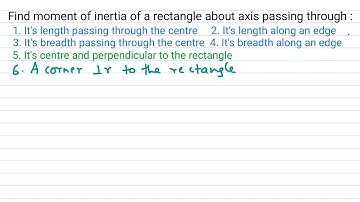 Find moment of inertia of a rectangle about axis passing through :
1. It's length passing through the centre 2. It's length along an edge .
3. It's breadth passing through the centre 4. It's breadth along an edge
5. It's centre and perpendicular to the rectangle
6. A corner ⊥r to the rectangle